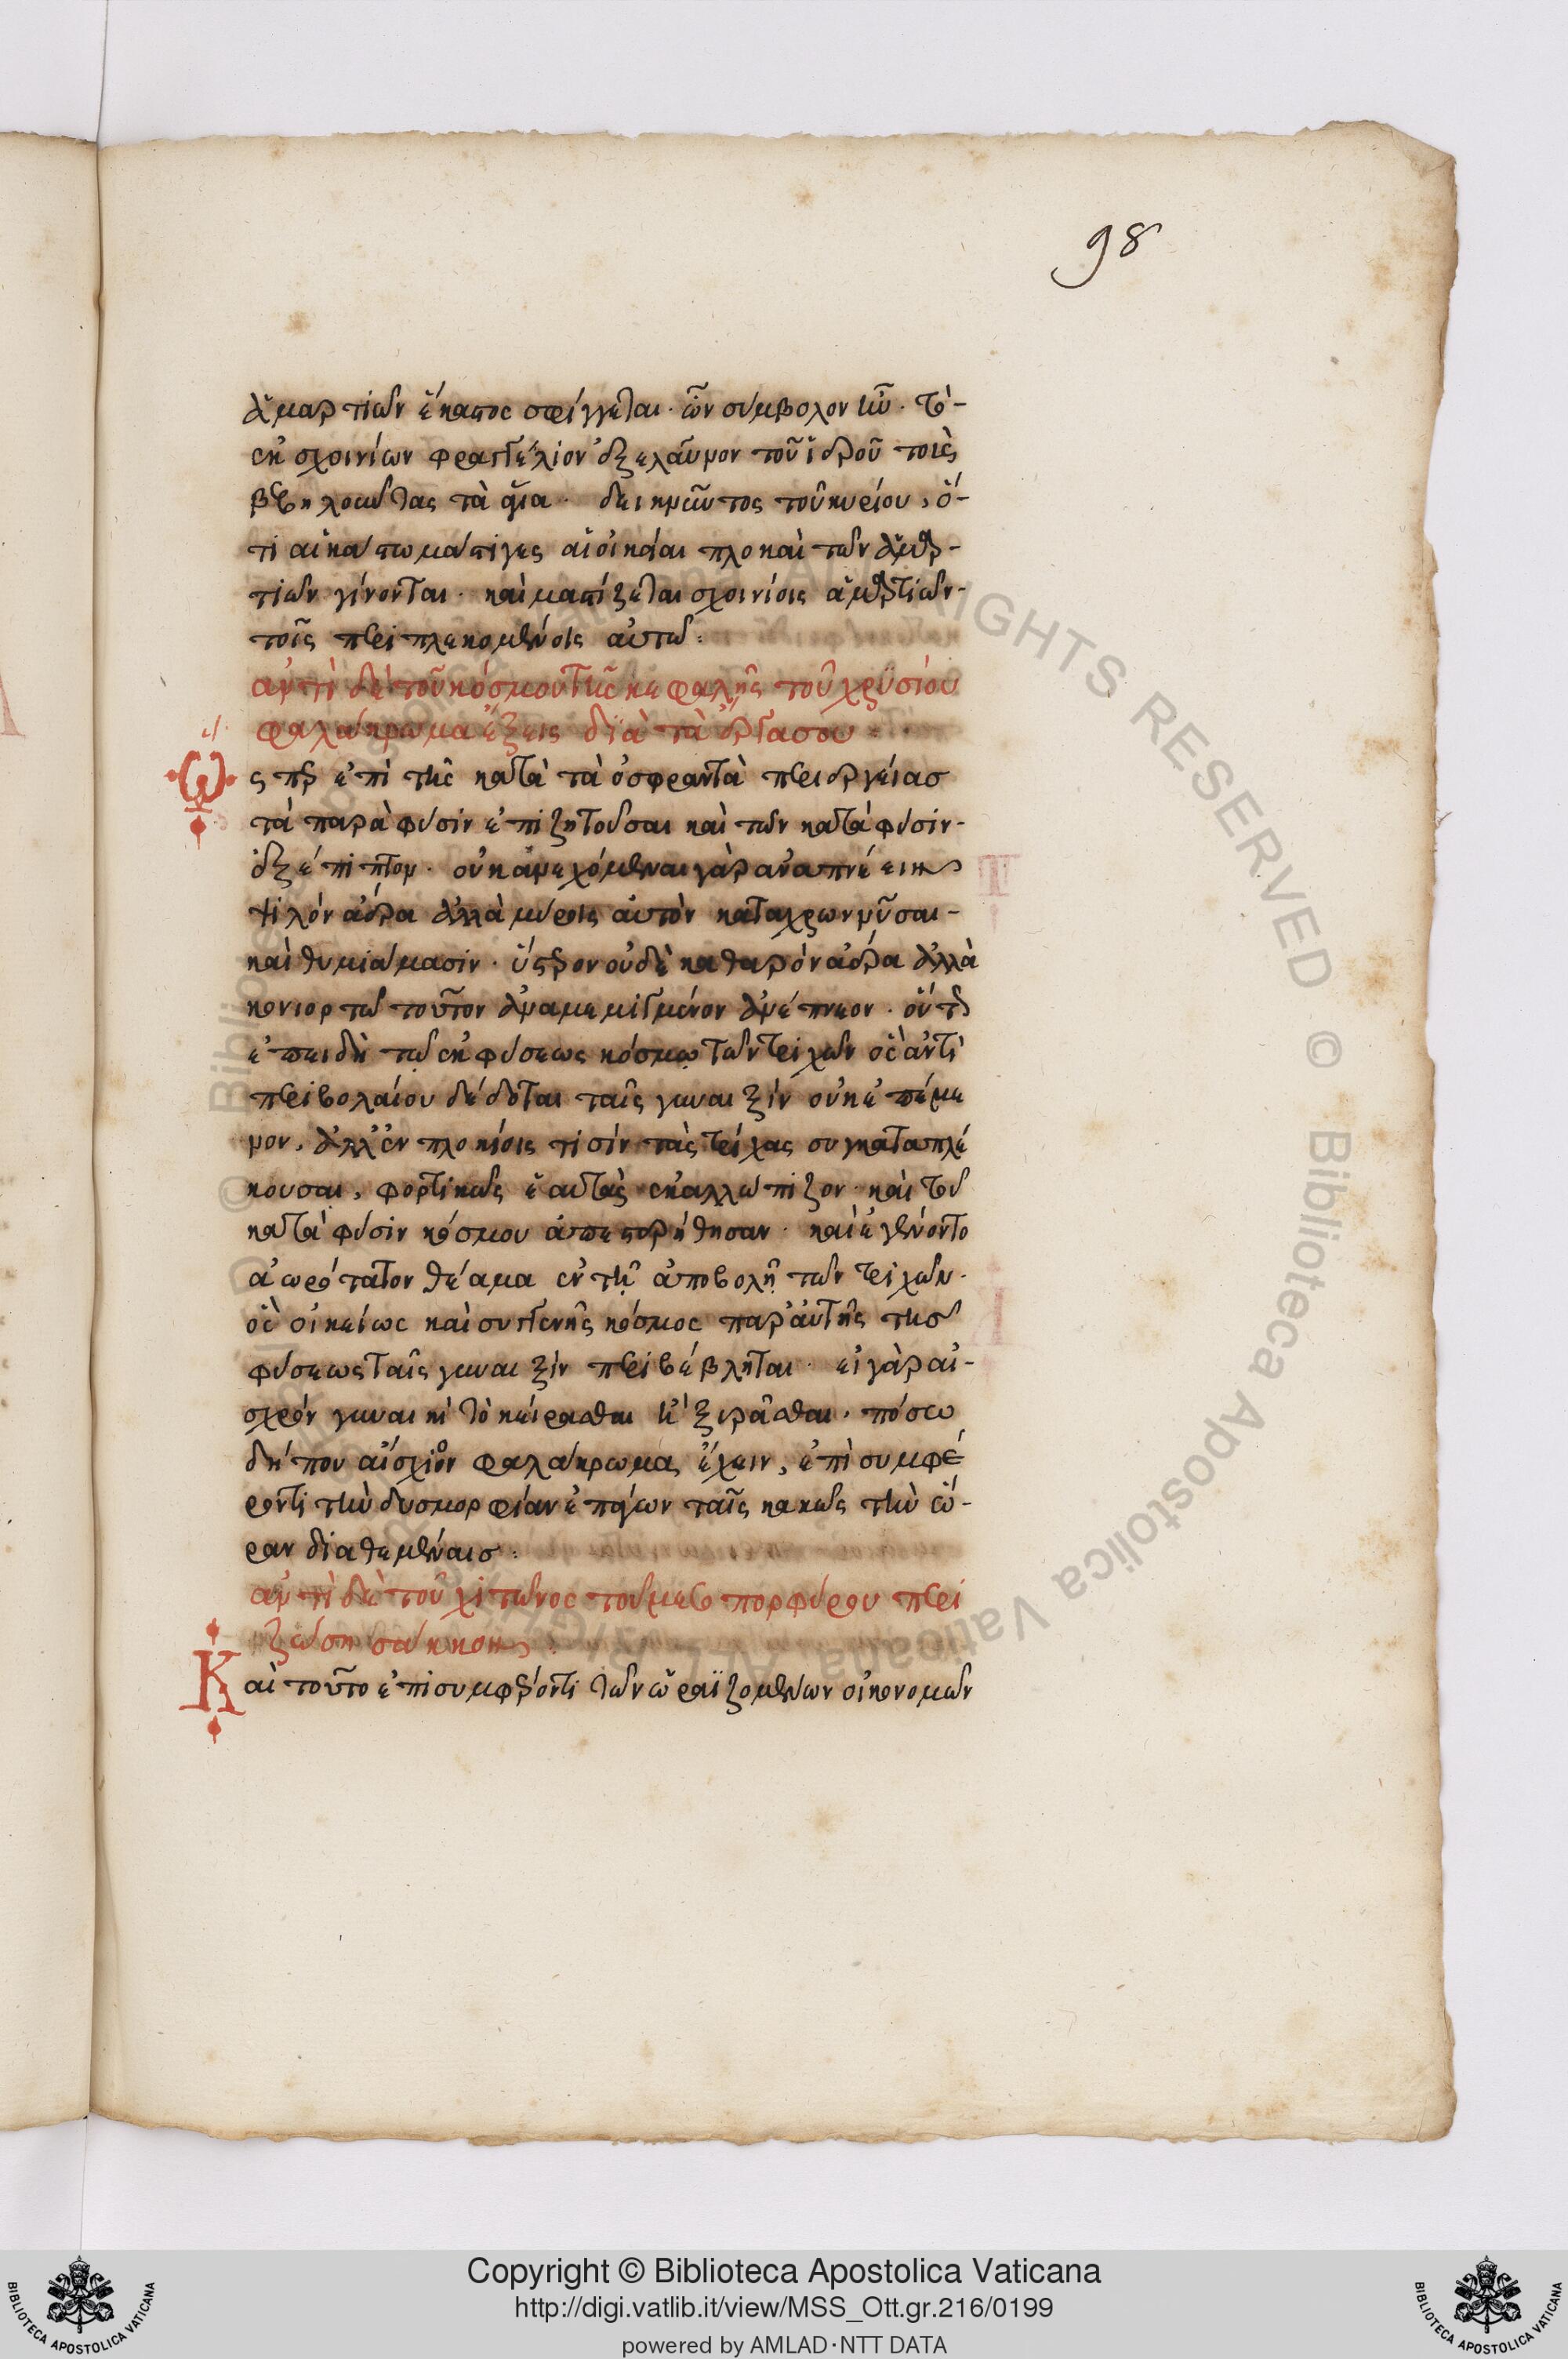 98
ἁμαρτιῶν ἕκαστος σφίγγεται· ὧν σύμβολον ἦν· τὸ
ἐκ σχοινίων φραγγέλιον ἐξελαῦνον τοῦ ἱεροῦ τοὺς
βεβηλοῦντας τὰ ἅγια· δεικνῦντος τοῦ κυρίου, ὅ-
τι αἱ καθ μάστιγες αἱ οἰκεῖαι πλοκαὶ τῶν ἁμαρ-
τιῶν γίνονται· καὶ μαστίζεται σχοινίοις ἁμαρτιῶν·
τοῖς περιπλεκομένοις αὐτῶ:
ἀντὶ δὲ τοῦ κόσμου τῆς κεφαλῆς τοῦ χρυσίου
φαλάκρωμα ἕξεις διὰ τὰ ἔργα σου:
Ὥς περ ἐπὶ τῆς κατὰ τὰ ὀσφραντὰ περιεργείας
τὰ παρὰ φύσιν ἐπιζητοῦσαι καὶ τῶν κατὰ φύσιν·
ἐξέπιπτον· οὐκ ἀνεχόμεναι γὰρ ἀναπνέειν
ψιλὸν ἀέρα ἀλλὰ μύροις αὐτὸν καταχρωννῦσαι
καὶ θυμιάμασιν· ὕστερον οὐδὲ καθαρὸν ἀέρα ἀλλὰ
κονιορτῶ τοῦτον ἀναμεμιγμένον ἀνέπνεον· οὕτως
ἐπειδὴ τῷ ἐκ φύσεως κόσμῳ τῶν τριχῶν ὃς ἀντὶ
περιβολαίου δέδοται ταῖς γυναιξὶν οὐκ ἐπέμε
νον, ἀλλ' ἐν πλοκίοις τισὶν τὰς τρίχας συγκαταπλέ
κουσαι, φορτικῶς ἑαυτὰς ἐκαλλώπιζον· καὶ τοῦ
κατὰ φύσιν κόσμου ἀπεστερήθησαν· καὶ ἐγένοντο
ἀωρότατον θέαμα ἐν τῇ ἀποβολῇ τῶν τριχῶν·
ὃς οἰκείως καὶ συγγενὴς κόσμος παρ' αὐτῆς τῆς
φύσεως ταῖς γυναιξὶν περιβέβληται· εἰ γὰρ αἰ-
σχρὸν γυναικὶ τὸ κείρασθαι ἢ ξυρᾶσθαι, πόσω
δήπου αἴσχιον φαλάκρωμα ἔχειν, ἐπὶ συμφέ
ροντι τὴν δυσμορφίαν ἐπάγων ταῖς κακῶς τὴν ὥ-
ραν διαθεμέναις:
ἀντὶ δὲ τοῦ χιτῶνος τοῦ μεσοπορφύρου περι
ζώσῃ σάκκον:
Καὶ τοῦτο ἐπὶ συμφέροντι τῶν ὡραϊζομένων οἰκονομῶν
Copyright © Biblioteca Apostolica Vaticana
http://digi.vatlib.it/view/MSS_Ott.gr.216/0199
powered by AMLAD·NTT DATA